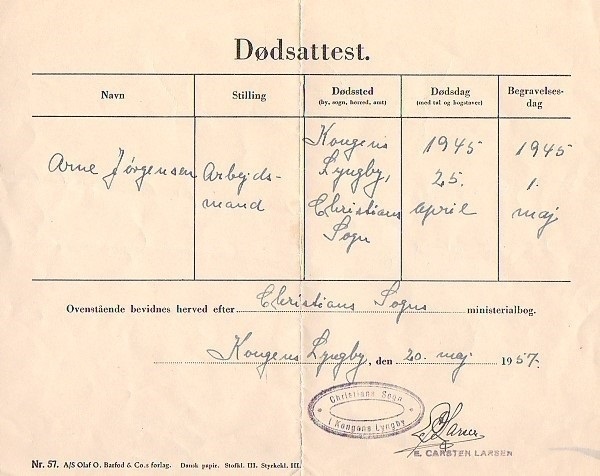 Dødsattest.
Navn
Stilling
Dødssted
(by, sogn, herred, amt)
Dødsdag
(med tal og bogstaver)
Begravelses-
dag
Arne Jørgensen
Arbejds-
mand
Kongens
Lyngby,
Christians
Sogn
1945
25.
april
1945
1.
maj
Ovenstående bevidnes herved efter Christians Sogns ministerialbog.
Kongens Lyngby, den 20. maj 1957.
Christians Sogn
i Kongens Lyngby
Larsen
E. CARSTEN LARSEN
Nr. 57. A/S Olaf O. Barfod & Co.s forlag. Dansk papir. Stofkl. III. Styrkekl. III.